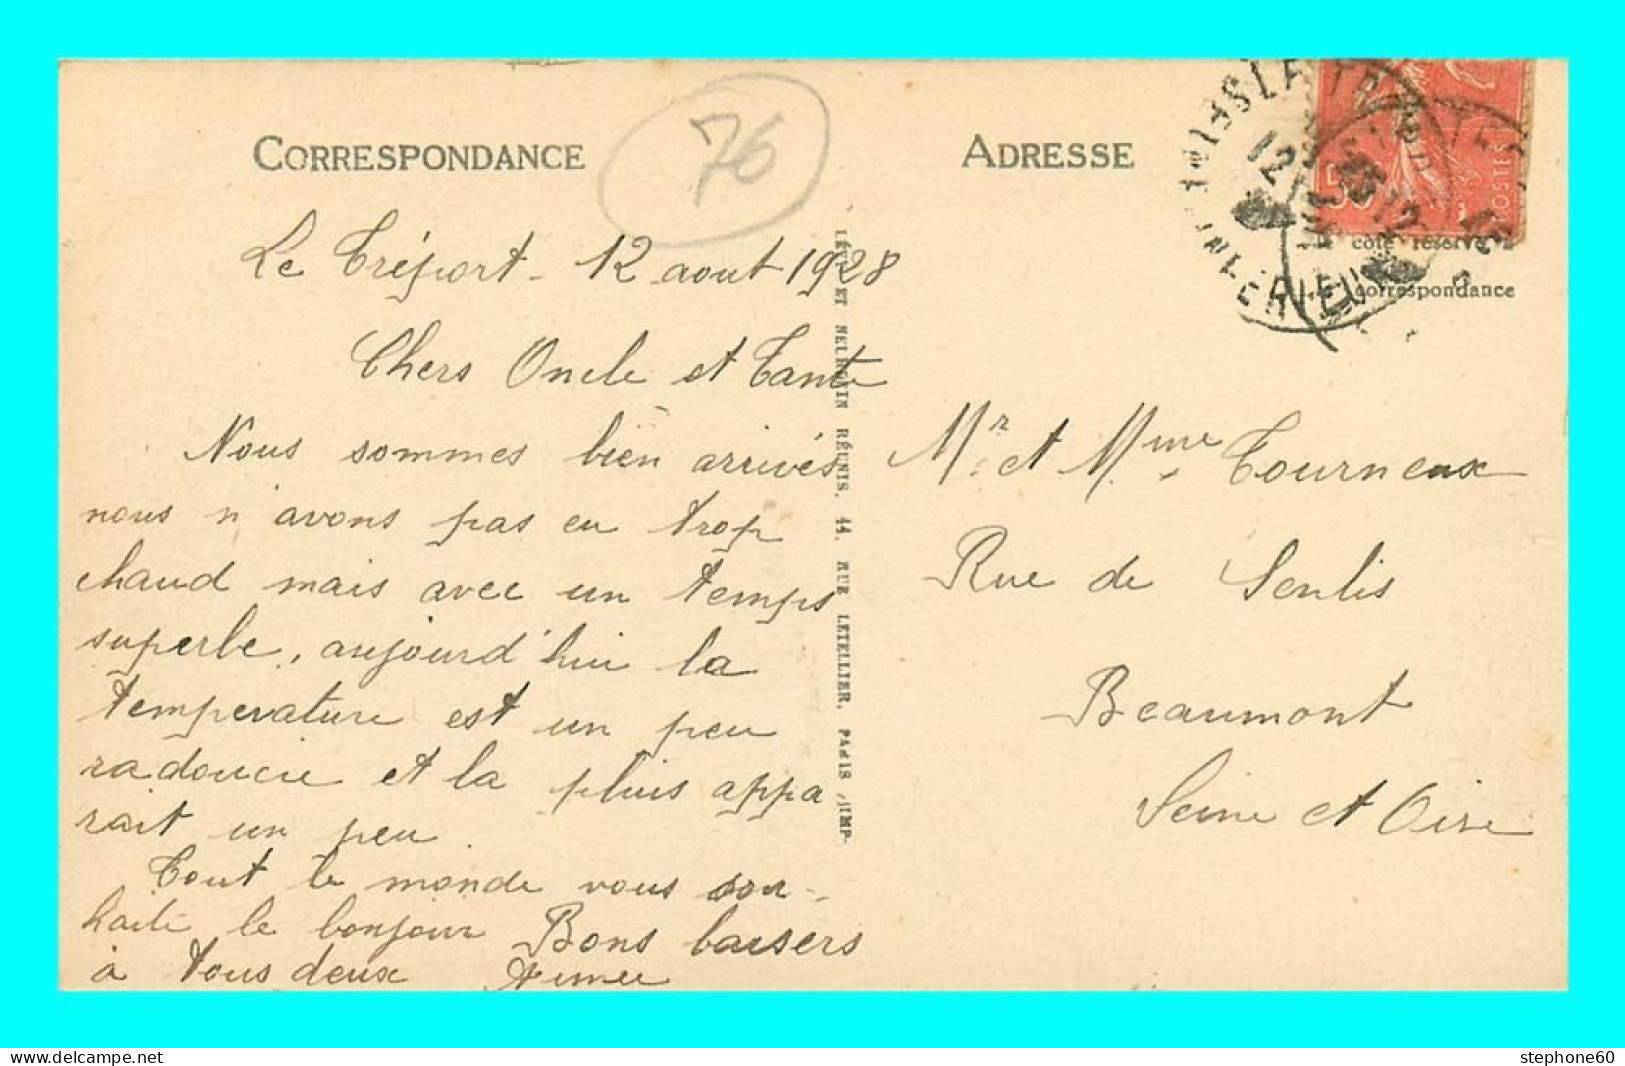 CORRESPONDANCE
76
ADRESSE
50
POSTES
côté réservé à
correspondance
Le Tréport - 12 aout 1928
Chers Oncle et Tante
Nous sommes bien arrivés
nous n'avons pas eu trop
chaud mais avec un temps
superbe, aujourd'hui la
temperature est un peu
radoucie et la pluis appa
rait un peu.
Tout le monde vous sou-
haite le bonjour Bons baisers
à tous deux Aimée
LÉVY ET NEURDEIN RÉUNIS, 44, RUE LETELLIER, PARIS (IMP-
Mr. et Mme Tourneux
Rue de Senlis
Beaumont
Seine et Oise
SEINE INFERIEURE
12
delcampe.net
stephone60